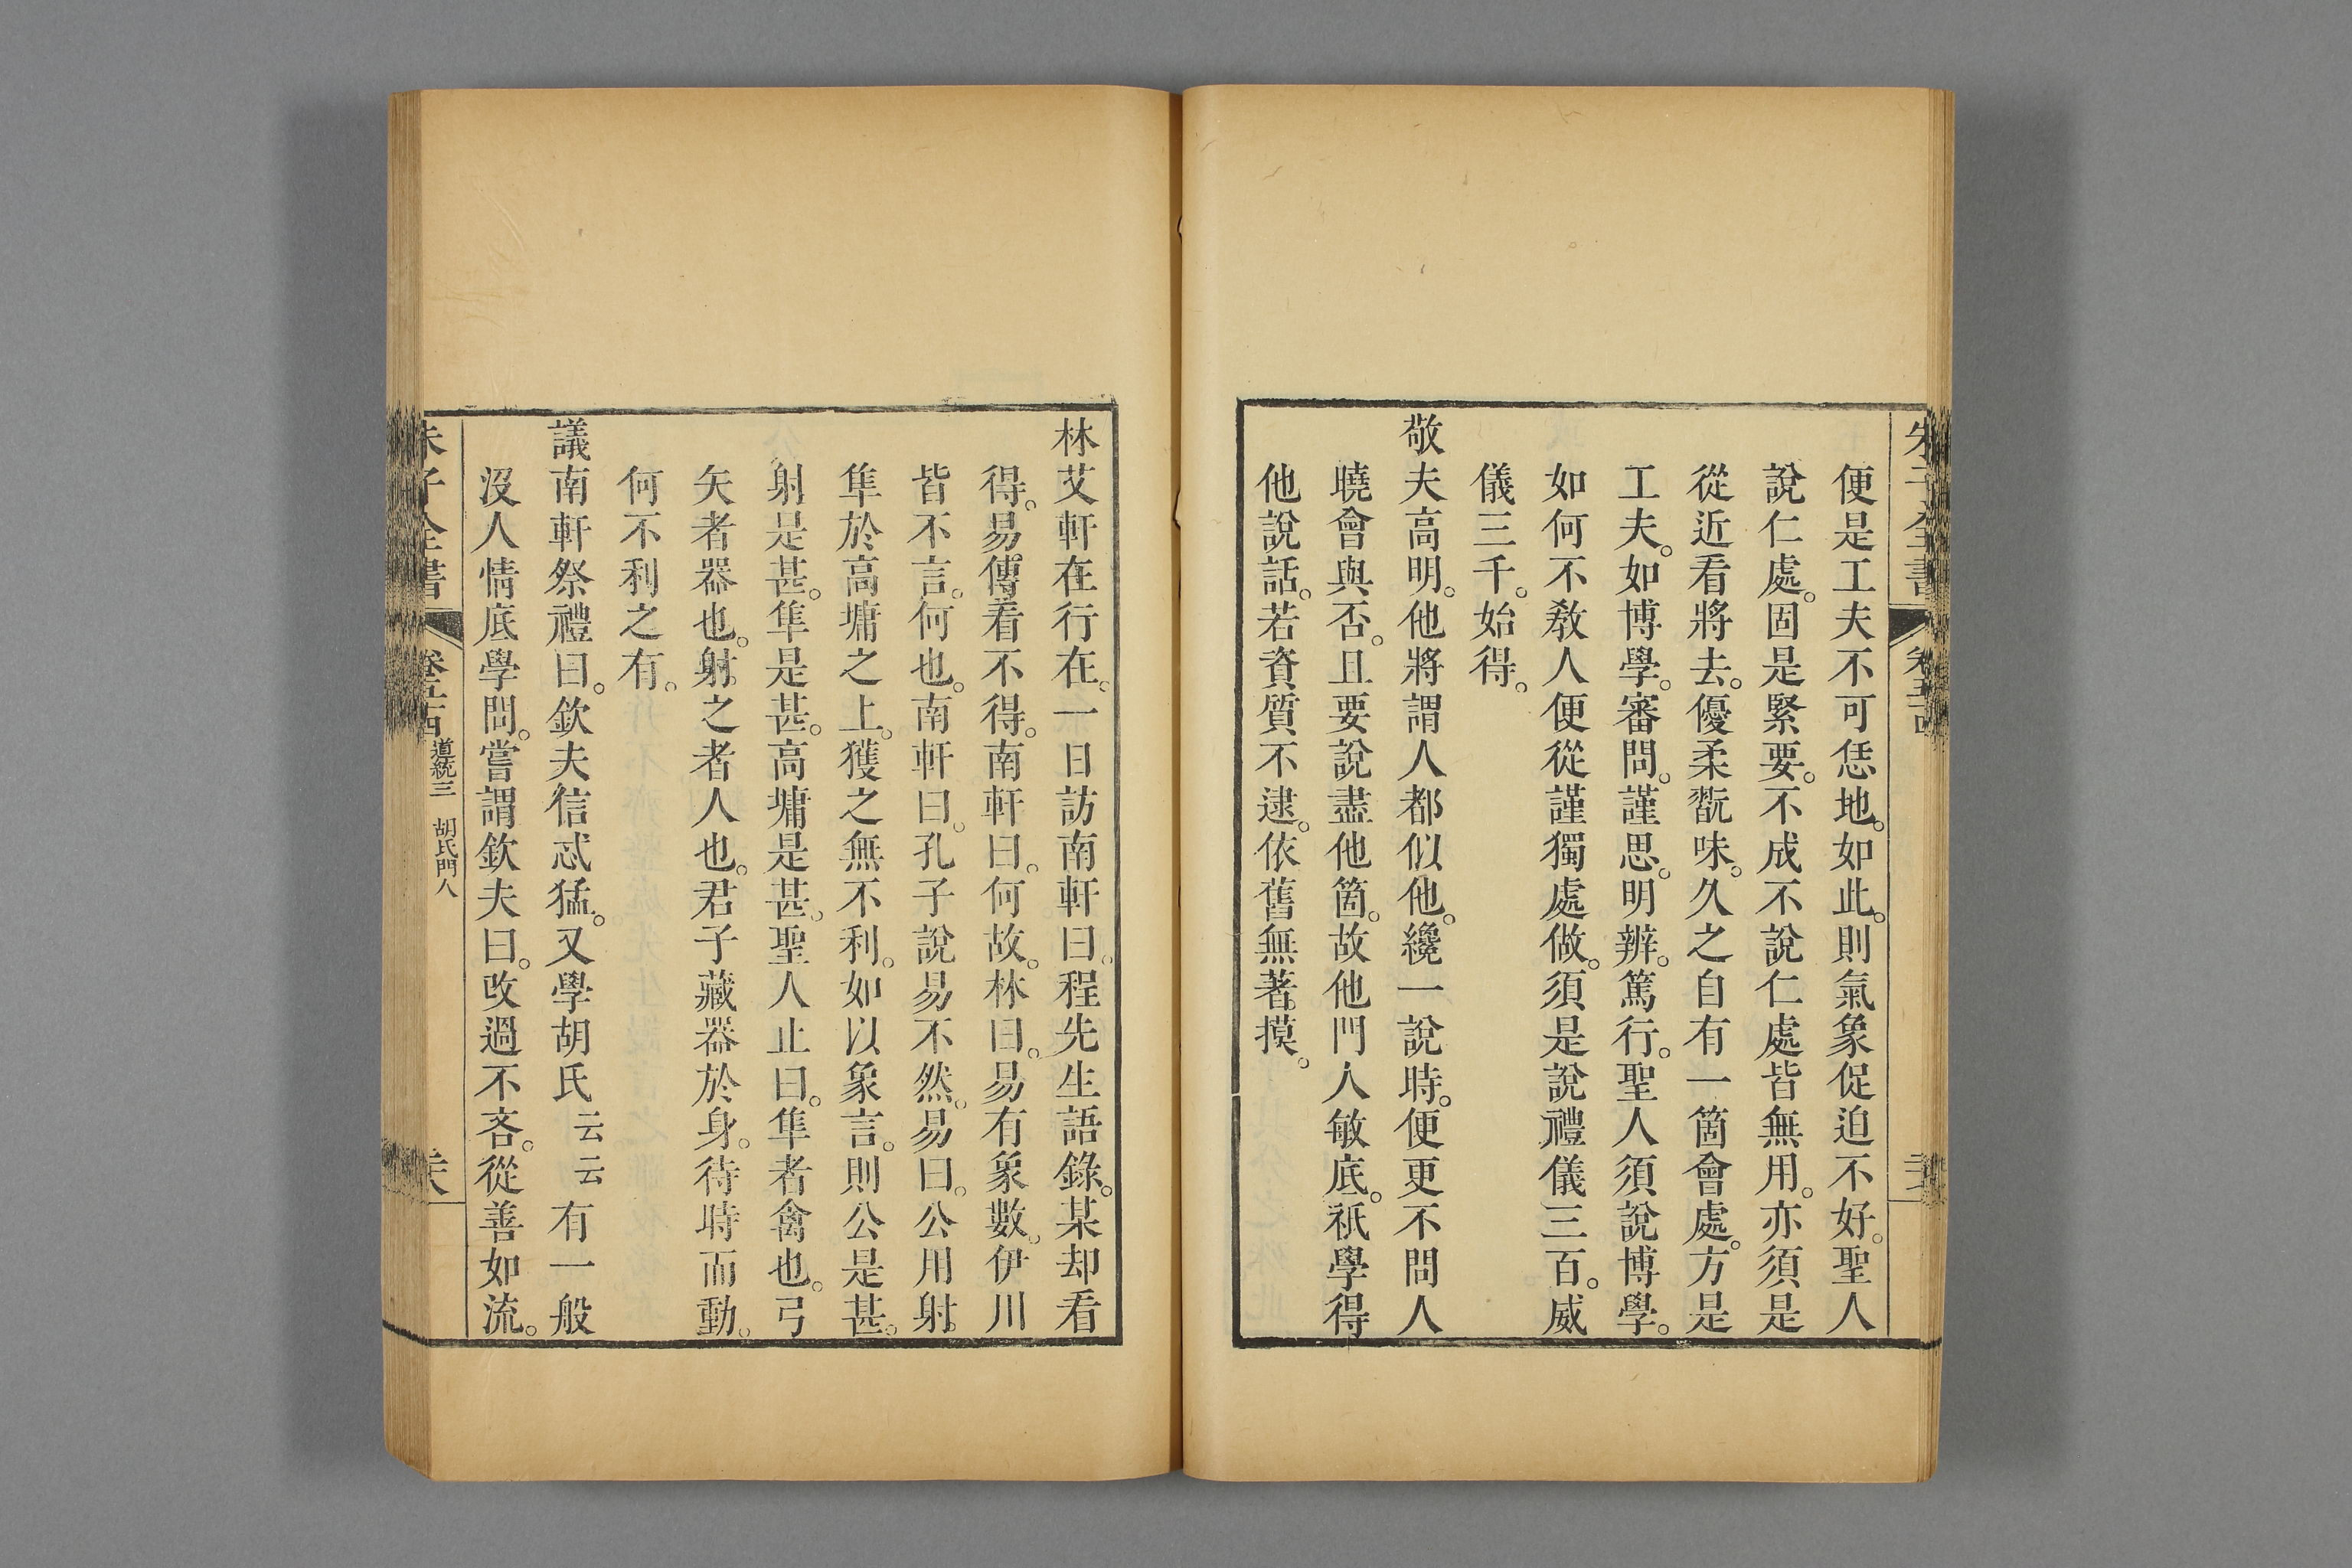 便是工夫不可恁地。如此。則氣象促迫不好。聖人
說仁處。固是緊要。不成不說仁處皆無用。亦須是
從近看將去。優柔翫味。久之自有一箇會處。方是
工夫。如博學。審問。謹思。明辨。篤行。聖人須說博學。
如何不敎人便從謹獨處做。須是說禮儀三百。威
儀三千。始得。
敬夫高明。他將謂人都似他。纔一說時。便更不問人
曉會與否。且要說盡他箇。故他門人敏底。祇學得
他說話。若資質不逮。依舊無著。摸。
林艾軒在行在。一日訪南軒曰。程先生語錄。某却看
得。易傳看不得。南軒曰。何故。林曰。易有象數。伊川
皆不言。何也。南軒曰。孔子說易不然。易曰。公用射。
隼於高墉之上。獲之無不利。如以象言。則公是甚。
射是甚。隼是甚。高墉是甚。聖人止曰。隼者禽也。弓
矢者器也。射之者人也。君子藏器於身。待時而動。
何不利之有。
議南軒祭禮曰。欽夫信忒猛。又學胡氏云云有一般
沒人情底學問。嘗謂欽夫曰。改過不吝。從善如流。
朱子全書
卷五十四
道統三 胡氏門人